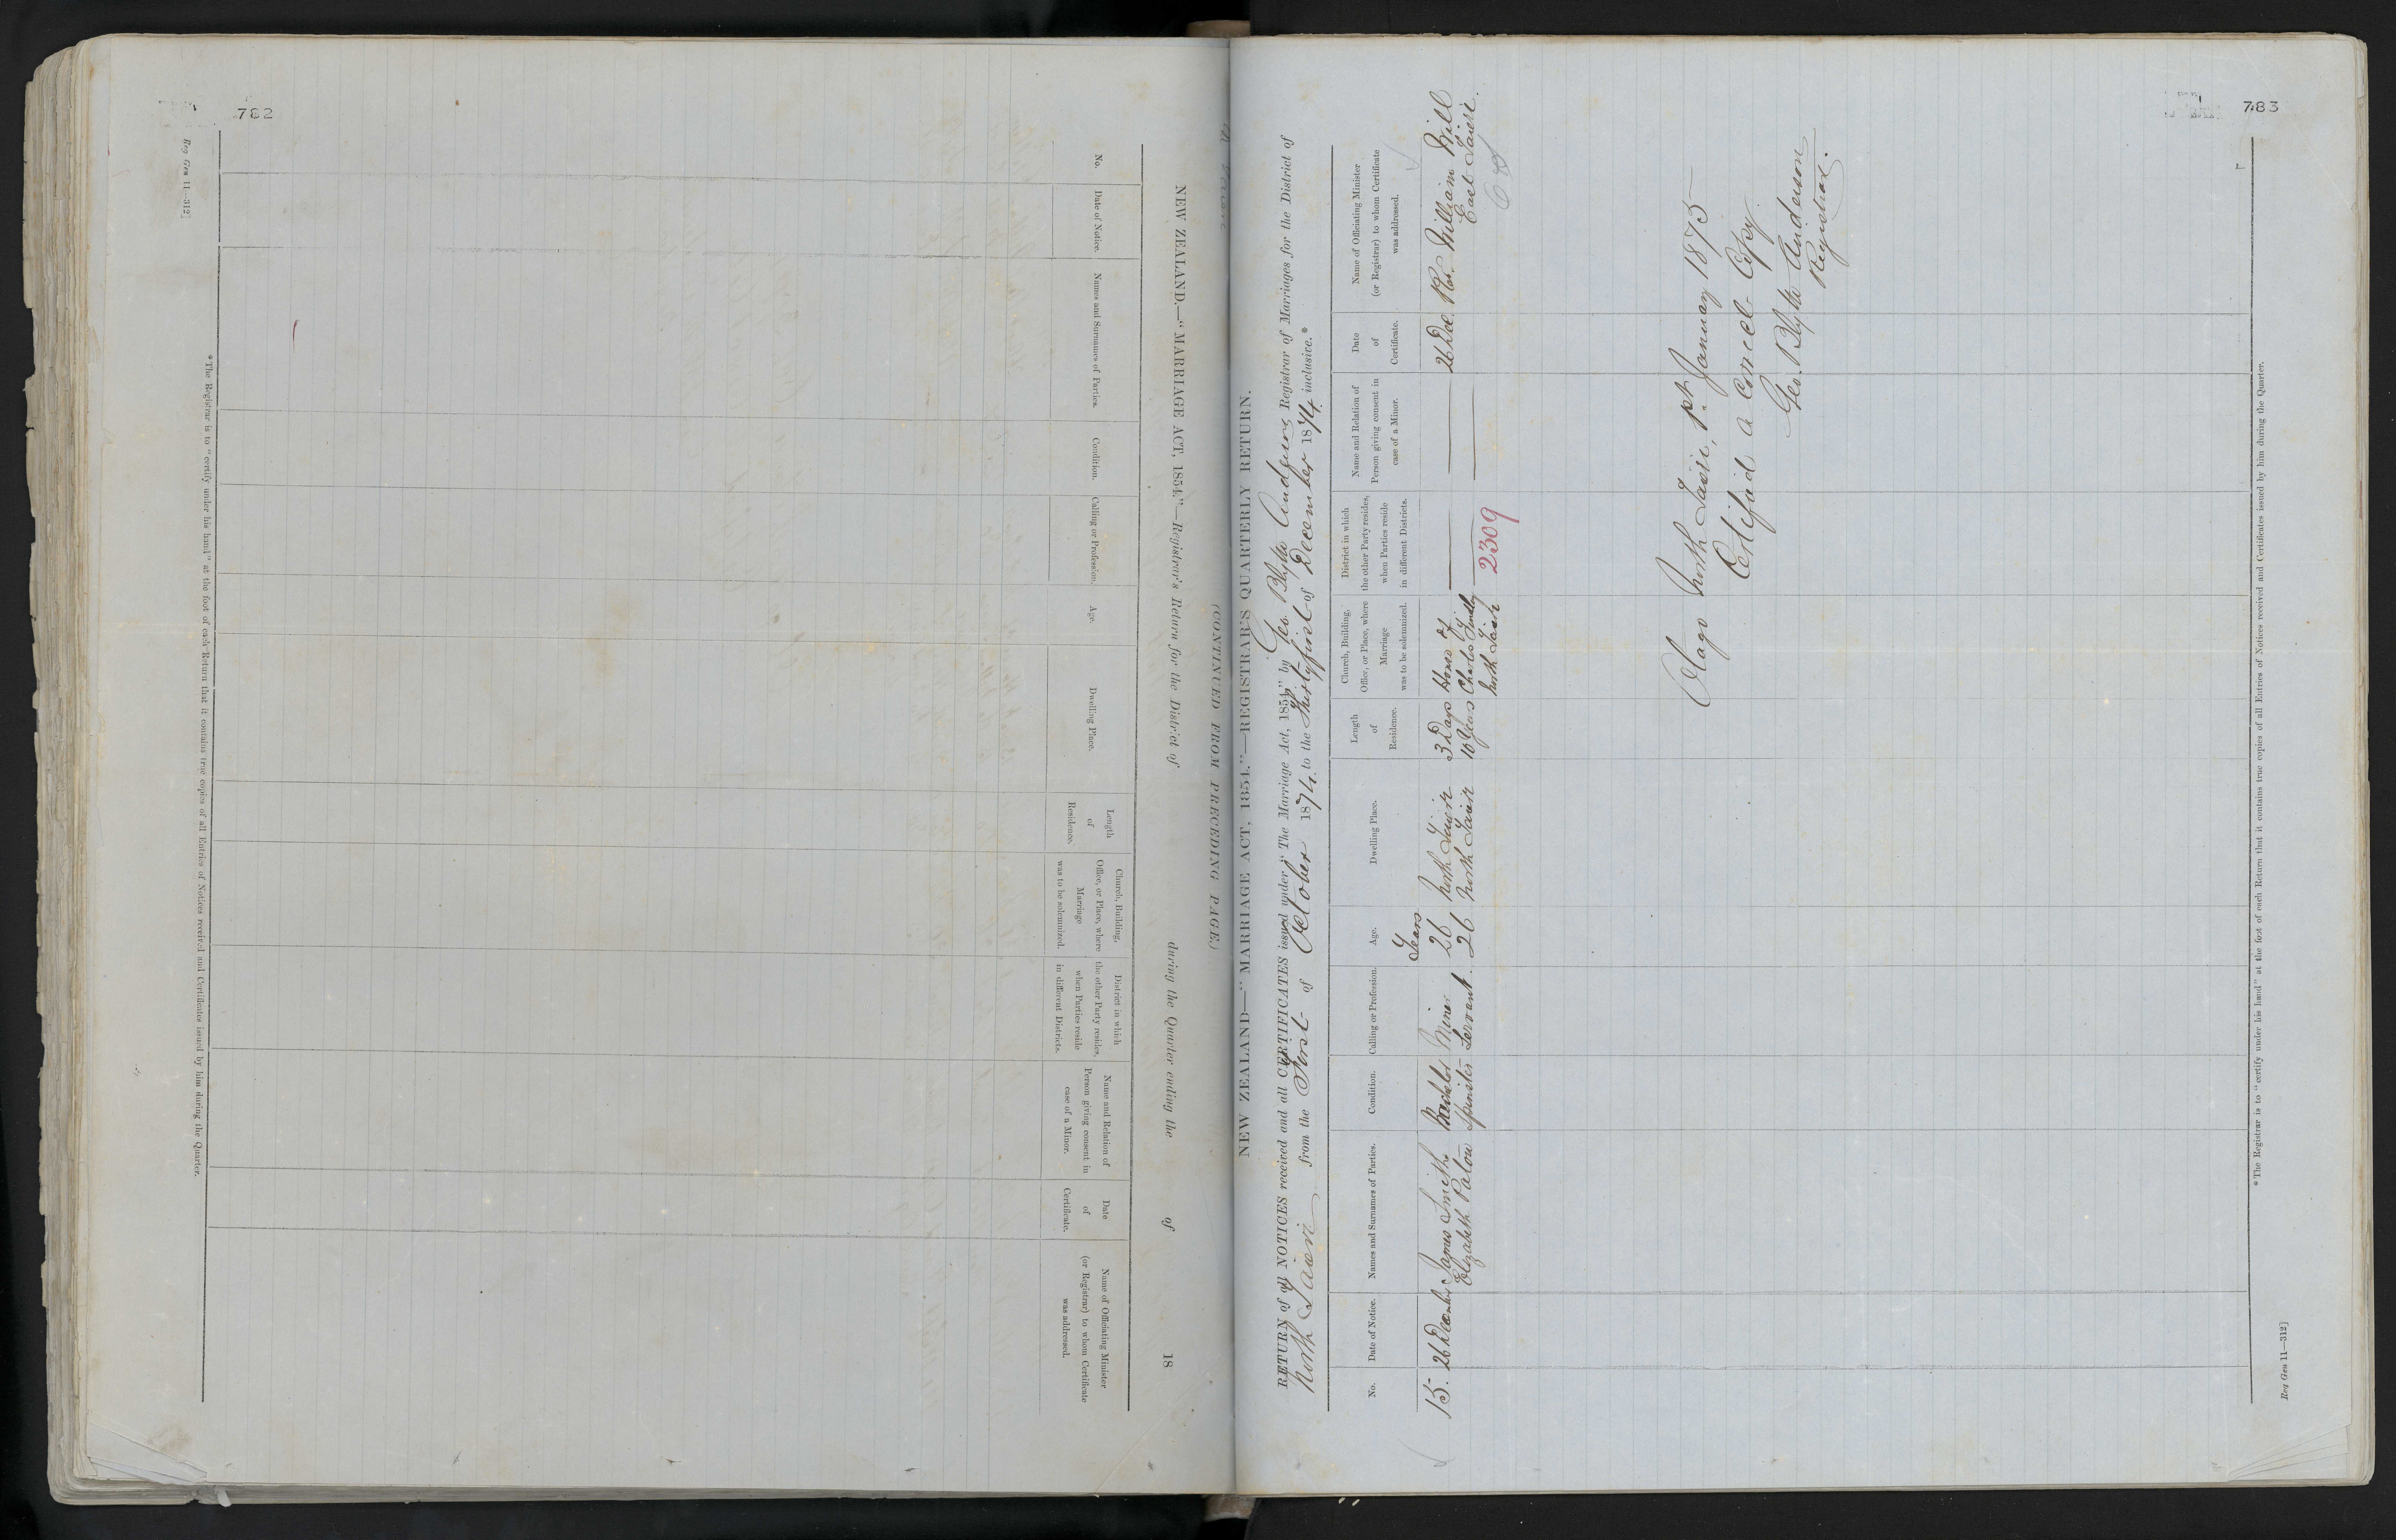 782
Reg Gen 11—312]
NEW ZEALAND.—"MARRIAGE ACT, 1854."—Registrar's Return for the District of during the Quarter ending the of 18
No.
Date of Notice.
Names and Surnames of Parties.
Condition.
Calling or Profession.
Age.
Dwelling Place.
Length
of
Residence.
Church, Building,
Office, or Place, where
Marriage
was to be solemnized.
District in which
the other Party resides,
when Parties reside
in different Districts.
Name and Relation of
Person giving consent in
case of a Minor.
Date
of
Certificate.
Name of Officiating Minister
(or Registrar) to whom Certificate
was addressed.
*The Registrar is to "certify under his hand" at the foot of each Return that it contains true copies of all Entries of Notices received and Certificates issued by him during the Quarter.
(CONTINUED FROM PRECEDING PAGE)
783
NEW ZEALAND—"MARRIAGE ACT, 1854."—REGISTRAR'S QUARTERLY RETURN.
RETURN of all NOTICES received and all CERTIFICATES issued under "The Marriage Act, 1854," by Geo Blyth Anderson Registrar of Marriages for the District of
North Taieri from the First of October 1874 to the Thirtyfirst of December 1874 inclusive.*
No.
Date of Notice.
Names and Surnames of Parties.
Condition.
Calling or Profession.
Age.
Dwelling Place.
Length
of
Residence.
Church, Building,
Office, or Place, where
Marriage
was to be solemnized.
District in which
the other Party resides,
when Parties reside
in different Districts.
Name and Relation of
Person giving consent in
case of a Minor.
Date
of
Certificate.
Name of Officiating Minister
(or Registrar) to whom Certificate
was addressed.
Years
15. 26 December James Smith Bachelor Miner 26 North Taieri 3 Days House of 26 Dec. Rev. William Will
Elizabeth Paton Spinster Servant 26 North Taieri 10 Years Charles Findlay East Taieri.
North Taieri
2309
Otago North Taieri, 1st January 1875
Certified a correct Copy
Geo. Blyth Anderson
Registrar.
*The Registrar is to "certify under his hand" at the foot of each Return that it contains true copies of all Entries of Notices received and Certificates issued by him during the Quarter.
Reg Gen 11—312]